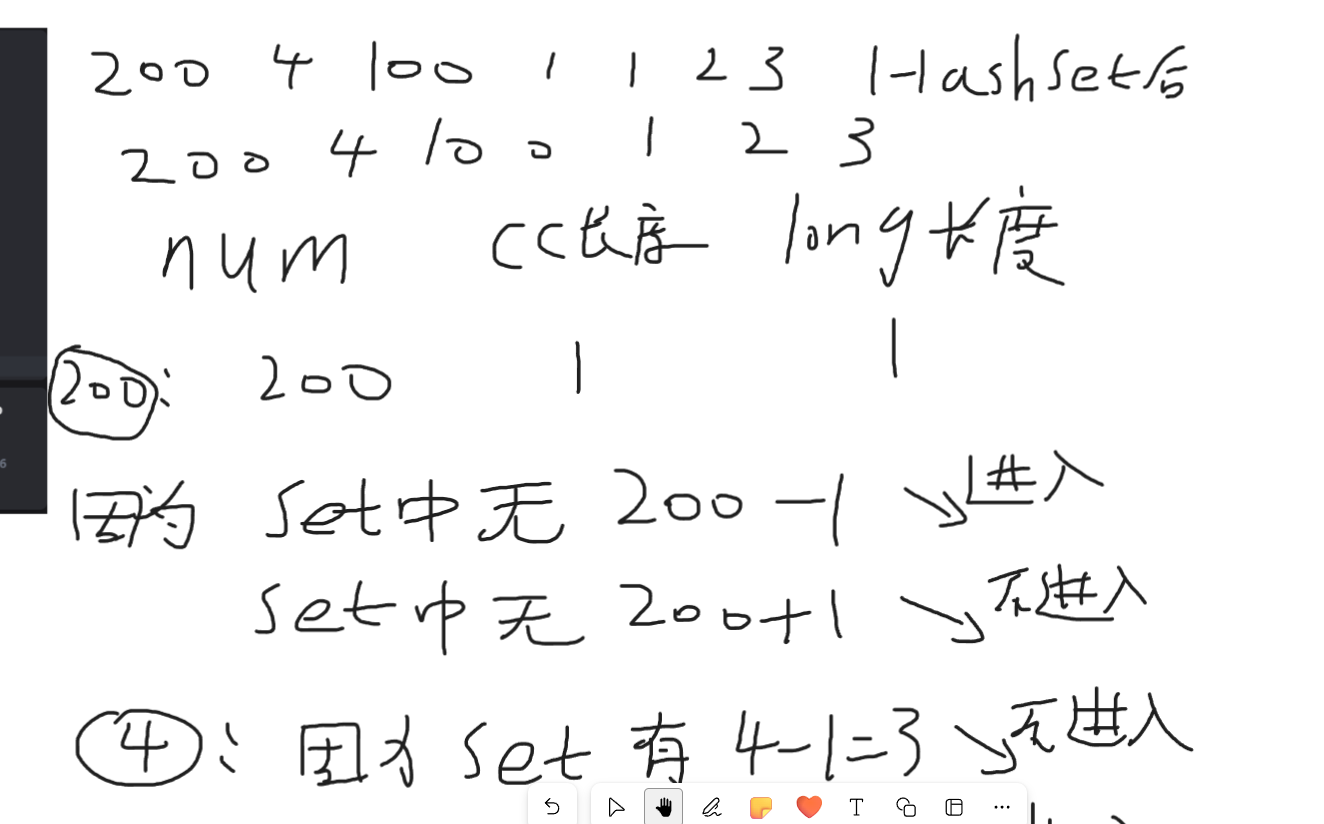 200 4 100 1 1 2 3 HashSet后
200 4 100 1 2 3
num cc长度 long长度
200: 200 1 1
因为 set中无 200-1 ↘进入
set中无 200+1 ↘不进入
4: 因为 set 有 4-1=3 ↘不进入
6
T